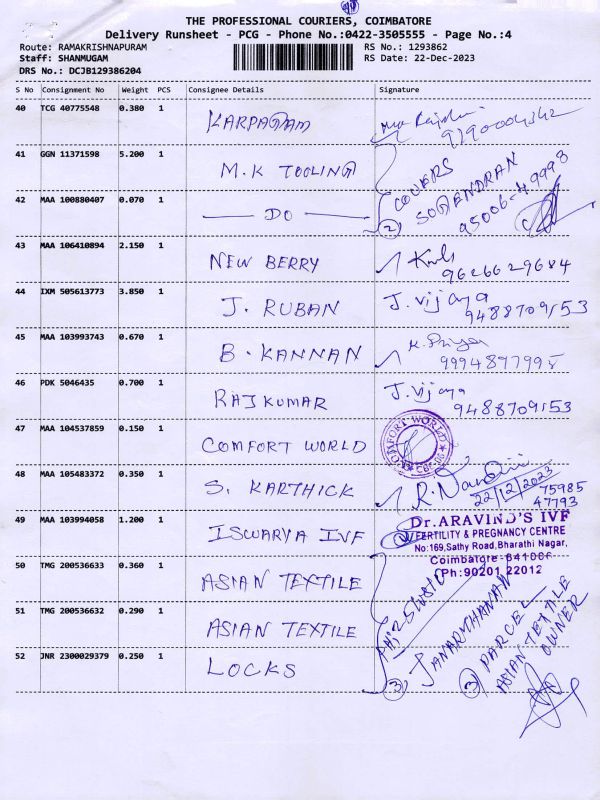 THE PROFESSIONAL COURIERS, COIMBATORE
Delivery Runsheet - PCG - Phone No.:0422-3505555 - Page No.:4
Route: RAMAKRISHNAPURAM RS No.: 1293862
Staff: SHANMUGAM RS Date: 22-Dec-2023
DRS No.: DCJB129386204
S No Consignment No Weight PCS Consignee Details Signature
40 TCG 40775548 0.380 1 KARPAGAM
41 GGN 11371598 5.200 1 M.K TOOLING COVERS
42 MAA 100880407 0.070 1 DO 2
43 MAA 106410894 2.150 1 NEW BERRY 9626629684
44 IXM 505613773 3.850 1 J. RUBAN J. vijaya 9488709153
45 MAA 103993743 0.670 1 B. KANNAN K. Priya
46 PDK 5046435 0.700 1 RAJKUMAR J. vijaya 9488709153
47 MAA 104537859 0.150 1 COMFORT WORLD COMFORT WORLD
48 MAA 105483372 0.350 1 S. KARTHICK R. Nandini 22/12/2023 75985 47793
49 MAA 103994058 1.200 1 ISWARYA IVF
Dr.ARAVIND'S IVF
FERTILITY & PREGNANCY CENTRE
No:169,Sathy Road,Bharathi Nagar,
Coimbatore-641006
Ph:90201 22012
50 TMG 200536633 0.360 1 ASIAN TEXTILE
51 TMG 200536632 0.290 1 ASIAN TEXTILE
52 JNR 2300029379 0.250 1 LOCKS
3 JANARTHANAN
3 PARCEL
ASIAN TEXTILE
OWNER